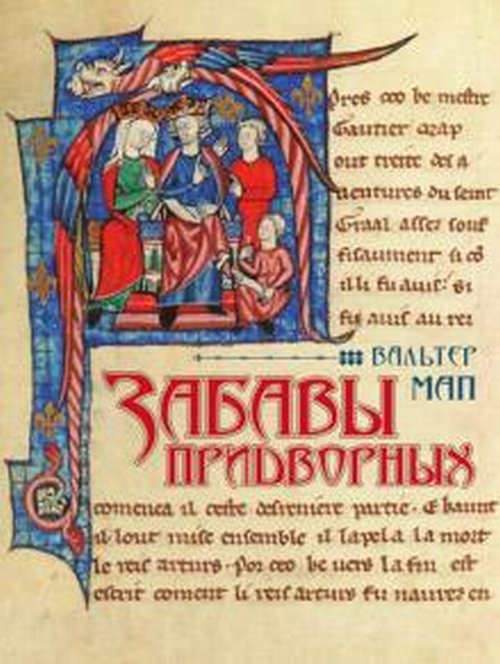 pres ceo be mestre
Gautier map
out treite des a
uentures du seint
Graal assez souf
fisaument si co
il li fu auis: si
fu auis au rei
ВАЛЬТЕР
МАП
ЗАБАВЫ
ПРИДВОРНЫХ
comenca il ceste desreniere partie. E baunt
il lout mise ensemble il lapela la mort
le reis arturs. Por ceo be uers la fin est
escrit coment li reis arturs fu naures en